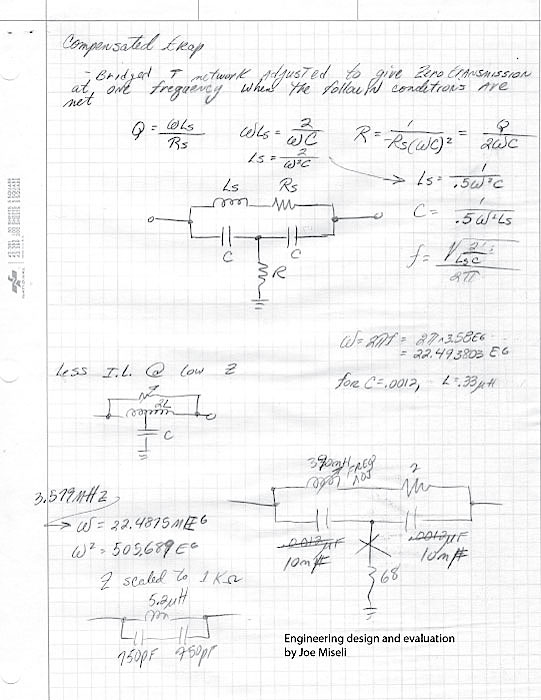 Compensated trap
- Bridged T network adjusted to give zero transmission
at one frequency when the followin conditions are
met
Q = ωLs / Rs
ωLs = 2 / ωC
R = 1 / Rs(ωC)² = Q / 2ωC
Ls = 2 / ω²C
Ls = 1 / .5ω²C
C = 1 / .5ω²Ls
f = √(2 / LsC) / 2π
Ls Rs
C C
R
ω = 2πf = 2π×3.58E6
= 22.493803 E6
for C=.0012, L=.33μH
Less I.L. @ low Z
2L
C
3.579MHz
ω = 22.4875 E6
ω² = 505,689 E6
Z scaled to 1KΩ
5.2μH
750pF 750pF
FREQ
ADJ
2
.0012μF .0012μF
68
Engineering design and evaluation
by Joe Miseli